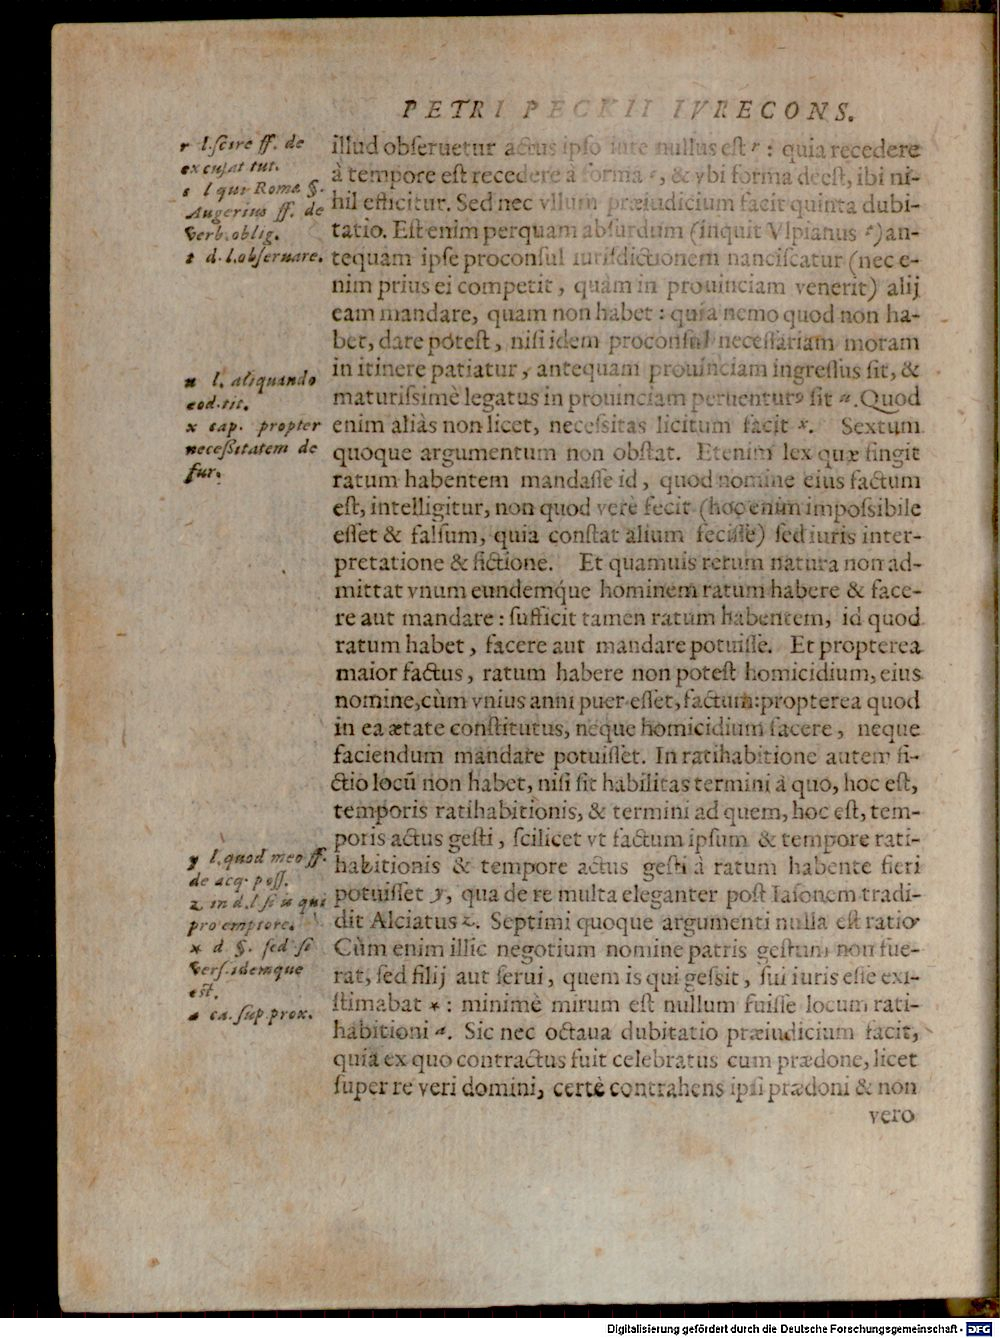 PETRI PECKII IVRECONS.
r l. scire ff. de
excusat tut.
s l qui Romæ §.
Augerius ff. de
verb. oblig.
t d. l. obseruare.
u l. aliquando
eod. tit.
x cap. propter
necessitatem de
fur.
y l. quod meo ff.
de acq. poss.
z in d. l. si is qui
pro emptore.
* d §. sed si
vers. idemque
est.
a ea. sup. prox.
illud obseruetur actus ipso iure nullus est r: quia recedere
à tempore est recedere à forma s, & vbi forma deest, ibi ni-
hil efficitur. Sed nec vllum præiudicium facit quinta dubi-
tatio. Est enim perquam absurdum (inquit Vlpianus t) an-
tequam ipse proconsul iurisdictionem nanciscatur (nec e-
nim prius ei competit, quàm in prouinciam venerit) alij
eam mandare, quam non habet: quia nemo quod non ha-
bet, dare potest, nisi idem proconsul necessariam moram
in itinere patiatur, antequam prouinciam ingressus sit, &
maturissimè legatus in prouinciam peruenturꝰ sit u. Quod
enim aliàs non licet, necessitas licitum facit x. Sextum
quoque argumentum non obstat. Etenim lex quæ fingit
ratum habentem mandasse id, quod nomine eius factum
est, intelligitur, non quod verè fecit (hoc enim impossibile
esset & falsum, quia constat alium fecisse) sed iuris inter-
pretatione & fictione. Et quamuis rerum natura non ad-
mittat vnum eundemq́ue hominem ratum habere & face-
re aut mandare: sufficit tamen ratum habentem, id quod
ratum habet, facere aut mandare potuisse. Et propterea
maior factus, ratum habere non potest homicidium, eius
nomine, cùm vnius anni puer esset, factum: propterea quod
in ea ætate constitutus, neque homicidium facere, neque
faciendum mandare potuisset. In ratihabitione autem fi-
ctio locũ non habet, nisi sit habilitas termini à quo, hoc est,
temporis ratihabitionis, & termini ad quem, hoc est, tem-
poris actus gesti, scilicet vt factum ipsum & tempore rati-
habitionis & tempore actus gesti à ratum habente fieri
potuisset y, qua de re multa eleganter post Iasonem tradi-
dit Alciatus z. Septimi quoque argumenti nulla est ratio
Cùm enim illic negotium nomine patris gestum non fue-
rat, sed filij aut serui, quem is qui gessit, sui iuris esse exi-
stimabat *: minimè mirum est nullum fuisse locum rati-
habitioni a. Sic nec octaua dubitatio præiudicium facit,
quia ex quo contractus fuit celebratus cum prædone, licet
super re veri domini, certè contrahens ipsi prædoni & non
vero
Digitalisierung gefördert durch die Deutsche Forschungsgemeinschaft - DFG